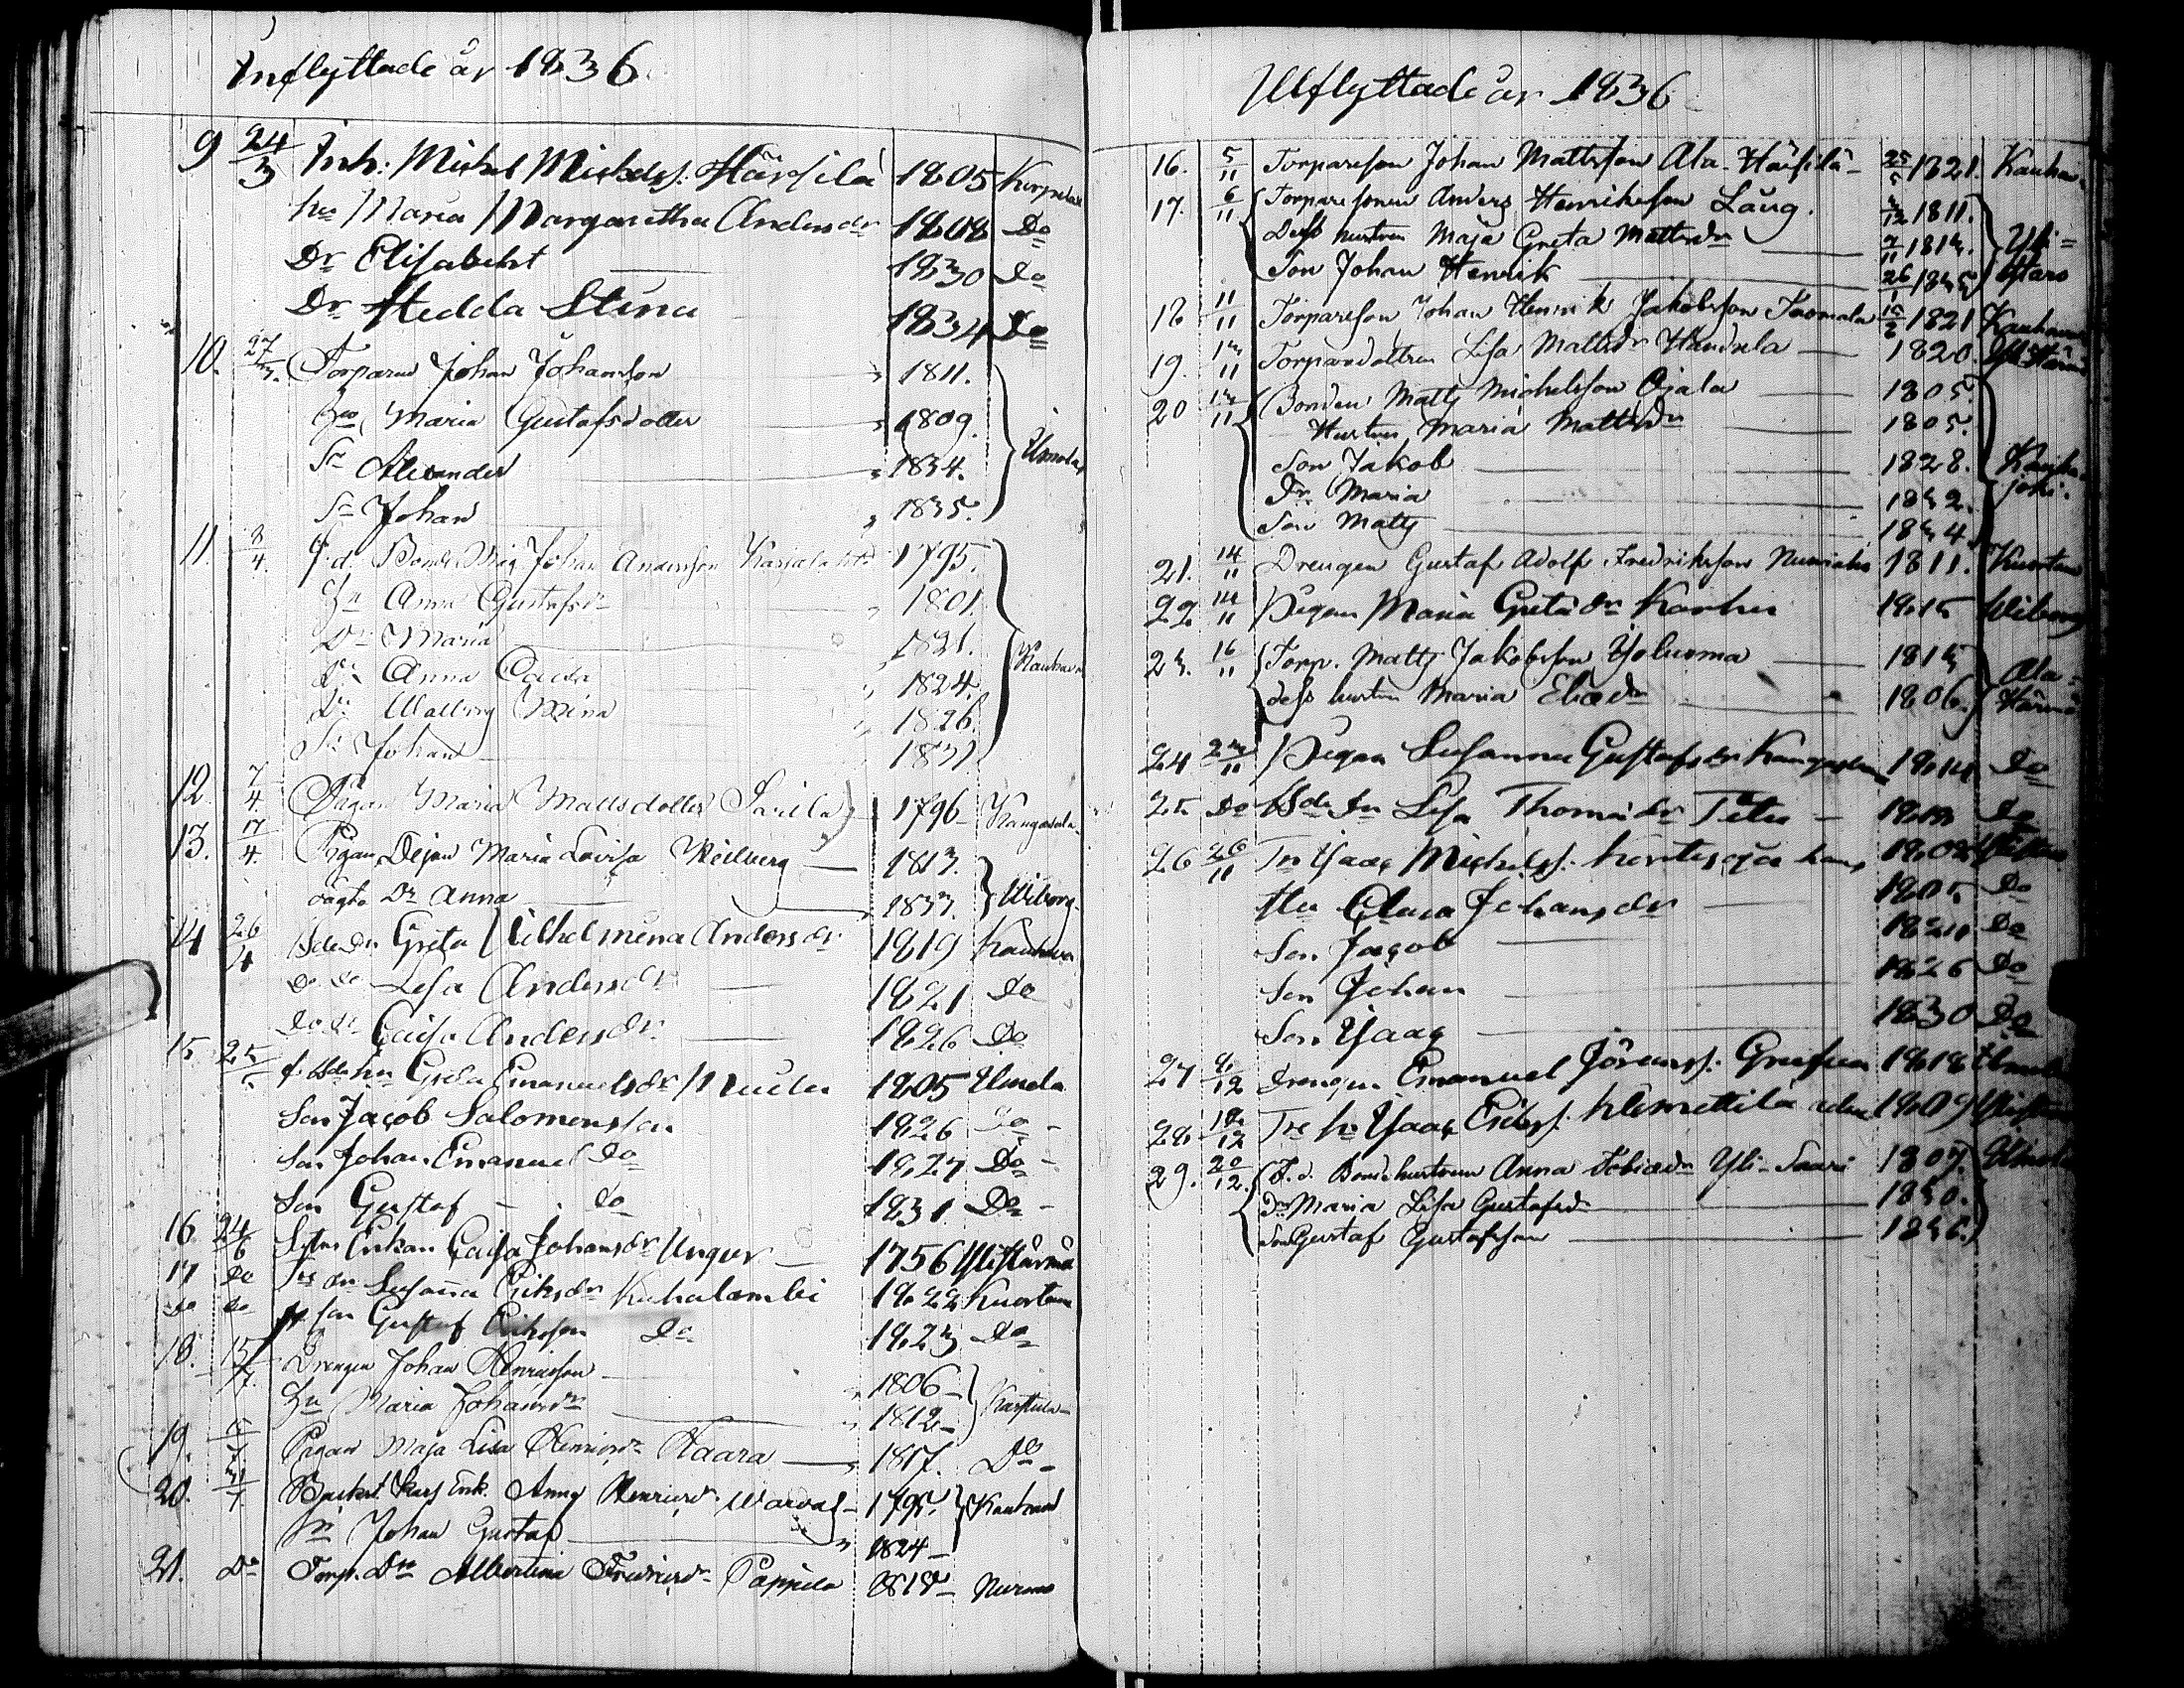 Inflyttade år 1836
9 24/3 Inh: Michel Michels. Härsilä 1805 Korpela
hu Maria Margaretha Andersdr 1808 Do
Dr Elisabeht 1830 Do
Dr Hedda Stina 1834 Do
10. 27/3. Torparen Johan Johansson 1811.
Hu Maria Gustafsdotter 1809.
Sn Alexander 1834. Ilmola
Sn Johan 1835.
11. 8/4. f.d. Bonde Johan Andersson 1795.
Hu Anna Gustafsdr 1801
Dr Maria 1821.
Dr Anna Caisa 1824. Kauhava
Dr Walborg Mina 1826.
Sn Johan 1831
12. 7/4. Pigan Maria Mattsdotter Sarila 1796 Kangasala
13. 17/4. Pigan Dejan Maria Lovisa 1813.
oägta Dr Anna 1833. Wiborg
14 26/4 Bde Dr Greta Wilhelmina Andersdr 1819 Kauhava
Do Do Lisa Andersdr 1821 Do
Do Dr Caisa Andersdr 1826 Do
15 25/5 f. Bde hu Greta Emanuelsdr 1805 Ilmola
Son Jacob Salomonsson 1826 Do
Son Johan Emanuel Do 1827 Do
Son Gustaf Do 1831 Do
16 24/6 Enkan Caisa Johansdr Ungur 1756 Ylihärmä
17 Do Susanna Eriksdr Kuhalambi 1822 Kuortane
Do Do son Gustaf Eriksson Do 1823 Do
18. 15/7. Drengen Johan Henricsson 1806
Hu Maria Johansdr 1812 Karstula
19. Pigan Maja Lisa Henricsdr Haara 1817. Do
20. 31/7. Enk. Anna Henricsdr 1795. Kauhava
Sn Johan Gustaf 1824
21. Do Torp. Dr Albertina Fredricsdr Pappila 1818 Nurmo
Utflyttade år 1836
16. 5/11 Torpareson Johan Mattsson Ala-Härsilä 25/5 1821. Kauhava
17. 6/11 Torparesonen Anders Henriksson Laug. 1811.
Dess hustru Maja Greta Mattsdr 1813. Yli=
Son Johan Henrik 1835 Staro
18 11/11 Torpareson Johan Henrik Jakobsson Tuomala 1821 Kauhava
19. 13/11 Torparedottren Lisa Mattsdr 1820. Yli Härmä
20 13/11 Bonden Matts Michelsson Ojala 1805.
Hustrun Maria Mattsdr 1805.
Son Jakob 1828. Kauha
Dr. Maria 1832. joki.
Son Matts 1834.
21. 14/11 Drengen Gustaf Adolf Fredriksson 1811. Kuortane
22 14/11 Pigan Maria Gretadr Karhu 1815 Wiborg
23. 16/11 Torp. Matts Jakobsson Yoluoma 1813 Ala=
dess hustru Maria Eliædr 1806. Härmä
24 23/11 Pigan Susanna Gustafsdr 1814 Do
25 Do Bde Dr Lisa Thomædr 1813 Do
26 26/11 Isaac Michelss. 1802
Hu Johansdr 1805 Do
Son Jacob 1824 Do
Son Johan 1826 Do
Son Isaac 1830 Do
27 8/12 Drengen Emanuel Jöranss. 1818 Ilmola
28 18/12 Isaac Erikss. Klemettilä 1809
29. 20/12. F.d. Bondehustrun Anna Tobiædr Yli-Saari 1807. Ilmola
Dr Maria Lisa Gustafsdr 1830.
Son Gustaf Gustafsson 1836.